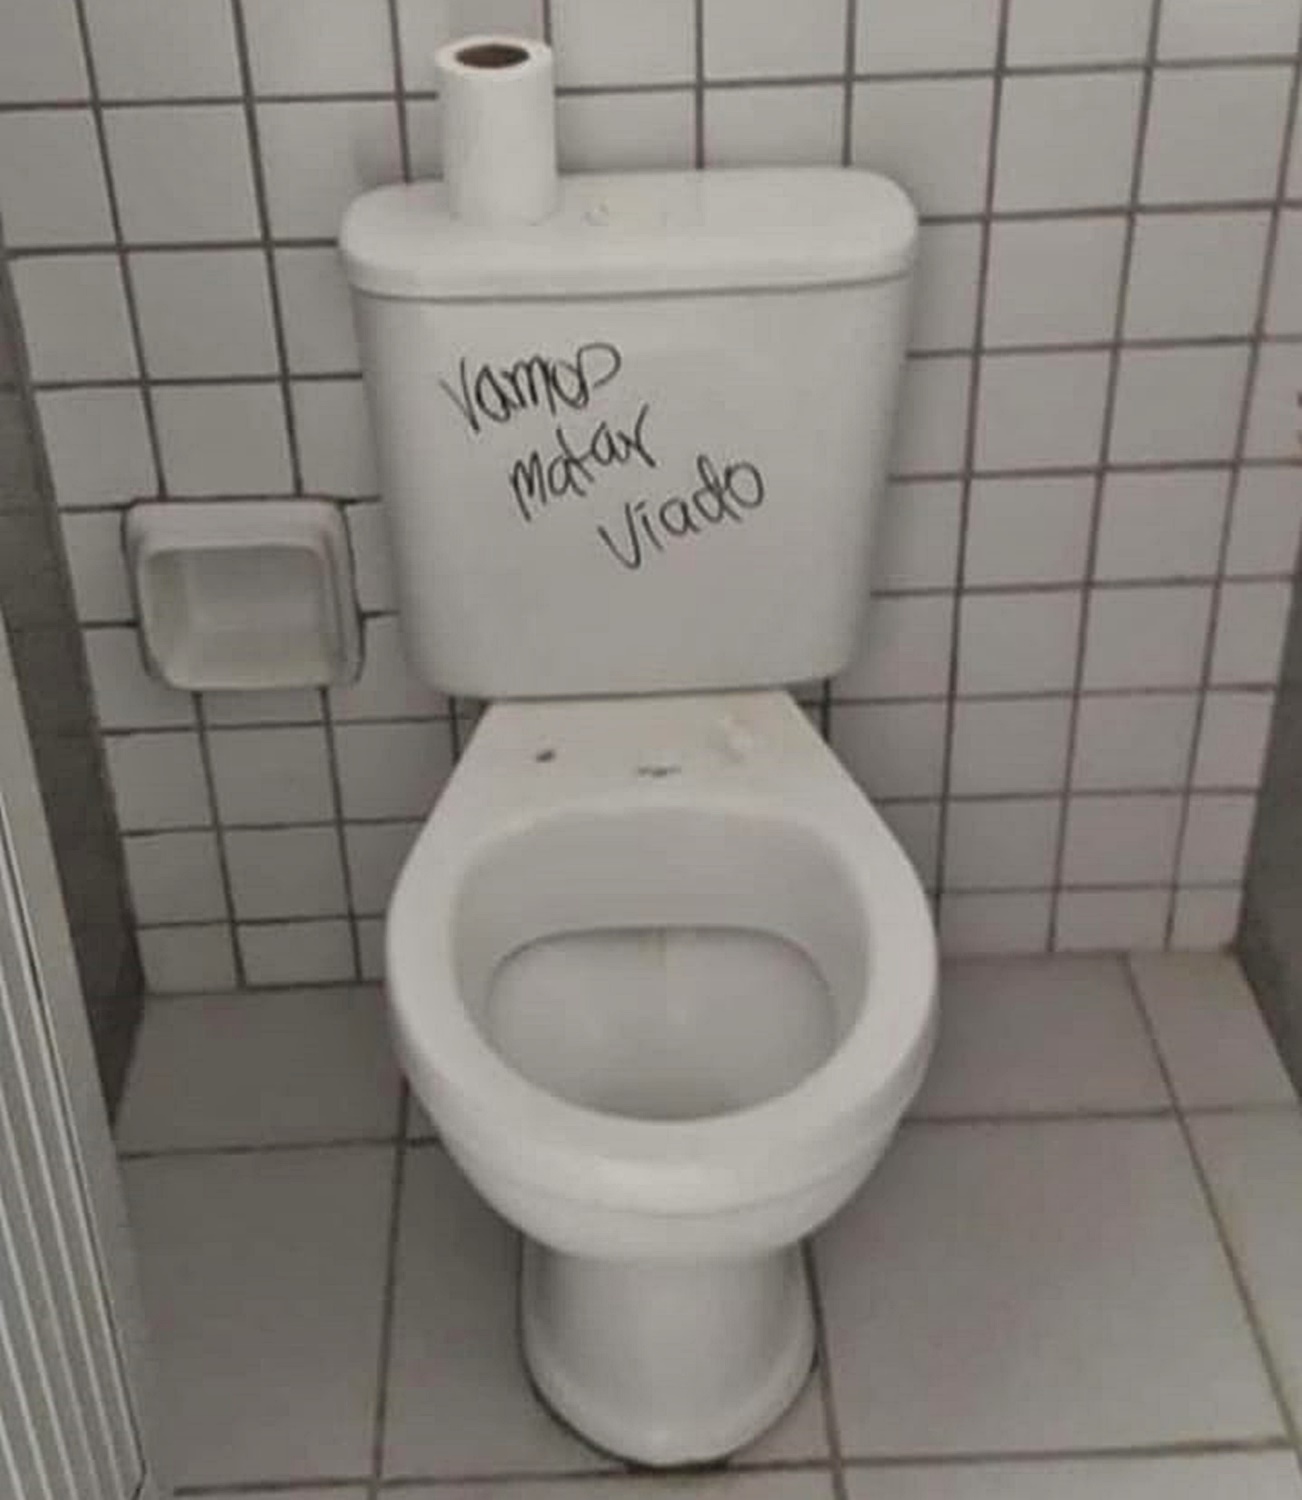 Vamos
matar
viado